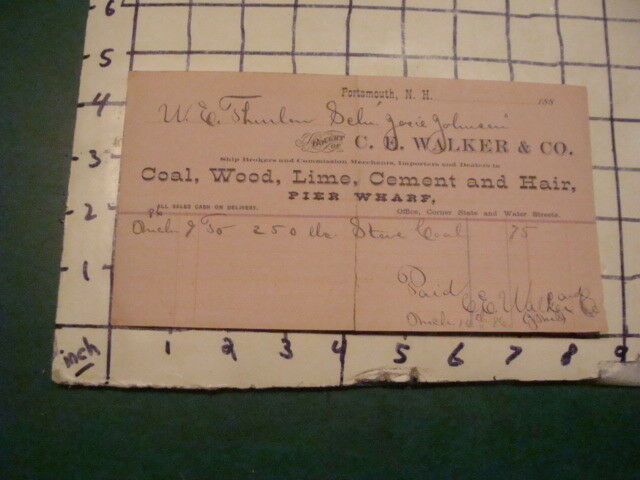 6
5
4
3
2
1
inch
1 2 3 4 5 6 7 8 9
Portsmouth, N. H. 188
W. E. Thurlow Schr "Josie Johnson"
BOUGHT OF C. E. WALKER & CO.
Ship Brokers and Commission Merchants, Importers and Dealers in
Coal, Wood, Lime, Cement and Hair,
PIER WHARF,
ALL SALES CASH ON DELIVERY. Office, Corner State and Water Streets.
To 250 lbs Stove Coal 75
Paid
C. E. Walker and Co